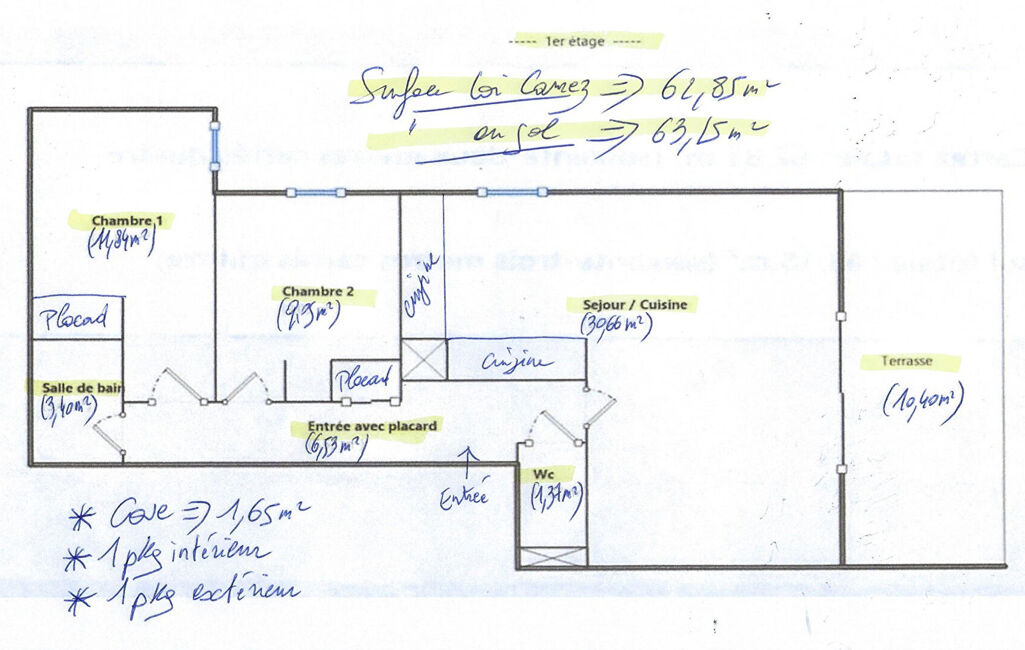 ----- 1er étage -----
Surface loi Carrez => 62,85m²
" au sol => 63,15m²
Chambre 1
(11,84m²)
Chambre 2
(9,95m²)
Sejour / Cuisine
(30,66m²)
Placard
cuisine
Terrasse
(10,40m²)
Placard
Salle de bain
(3,40m²)
Entrée avec placard
(6,53m²)
Wc
(1,37m²)
Entrée
* Cave => 1,65m²
* 1 pkg intérieur
* 1 pkg extérieur